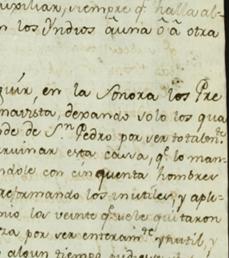 uxiliar, siempre q.e halla al-
n los Yndios q.e una ô â otra
guir, en la Sonora los Pre
navista, dexando solo los qua
nde de S.n Pedro por ser totalm.te
arruinar esta causa, q.e lo man-
ndole con cinquenta hombres
reformando los inutiles, y apli-
nio la veinte q.e se le quitaron
za por ser enteram.te ynutil, y
algun tiempo